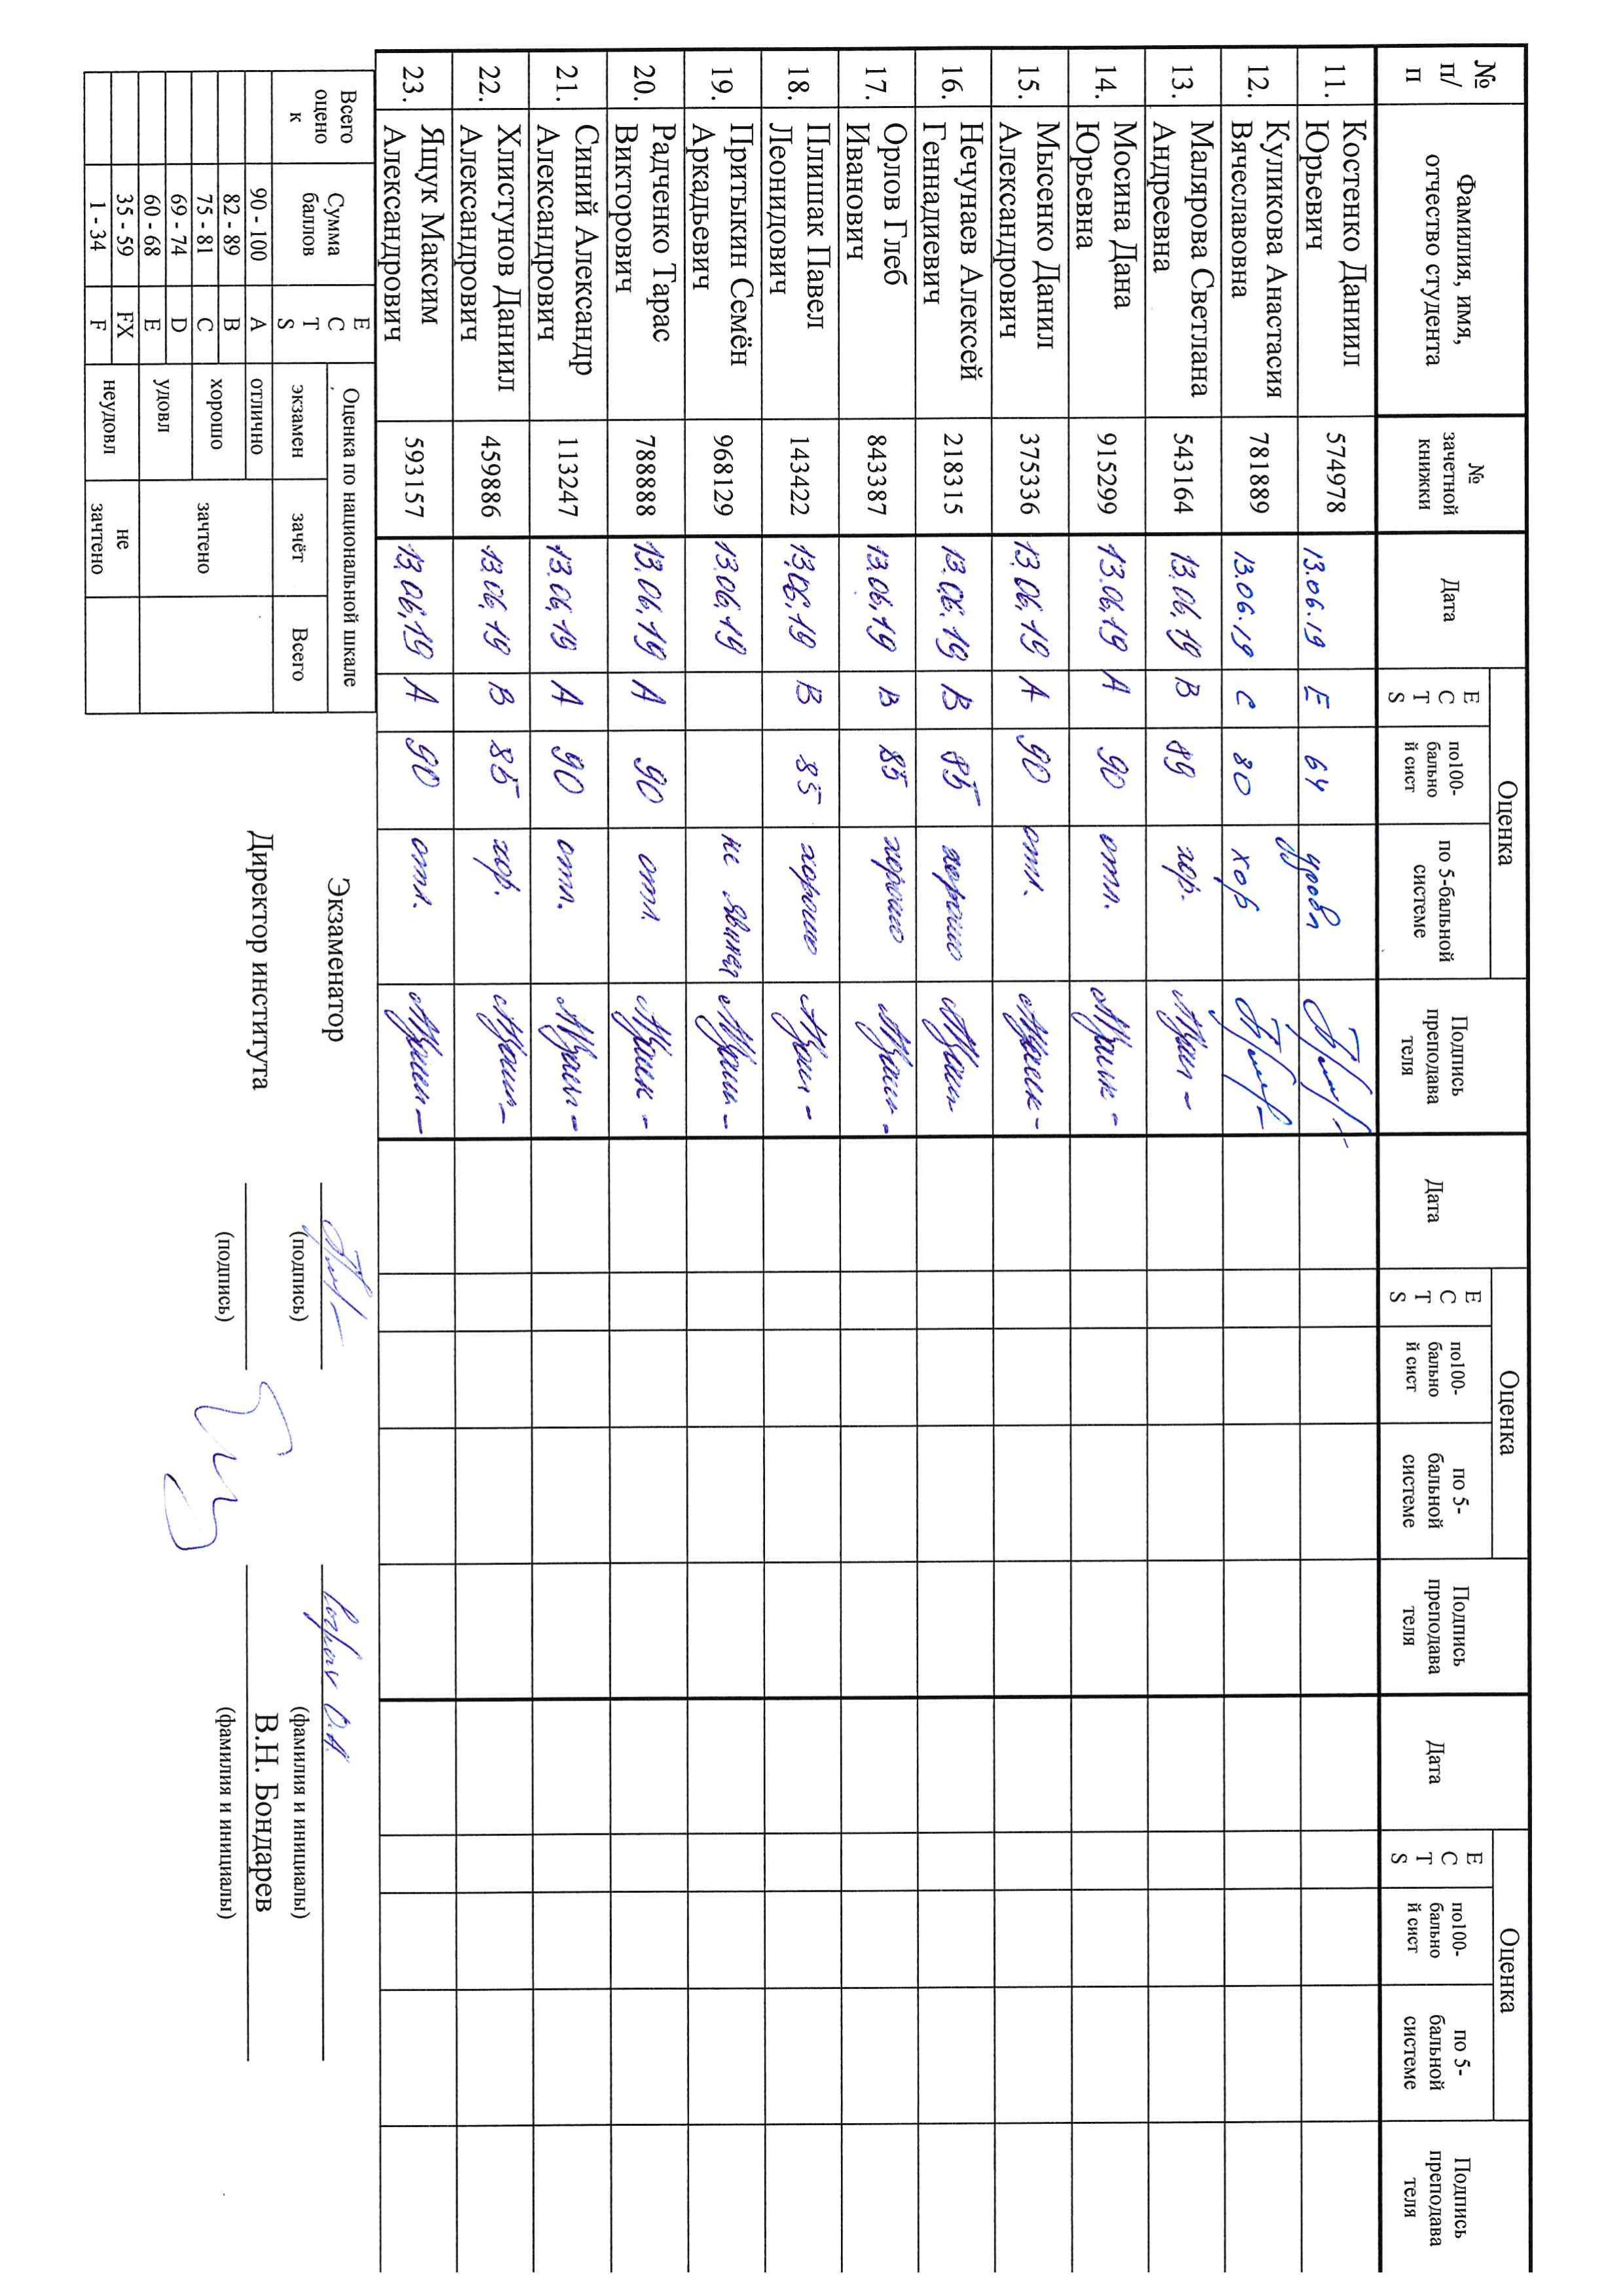 № п/п Фамилия, имя, отчество студента № зачетной книжки Дата Оценка Подпись преподавателя Дата Оценка Подпись преподавателя Дата Оценка Подпись преподавателя
ECTS по100-бальной сист по 5-бальной системе ECTS по100-бальной сист по 5-бальной системе ECTS по100-бальной сист по 5-бальной системе
11. Костенко Даниил Юрьевич 574978 13.06.19 E 64 удовл
12. Куликова Анастасия Вячеславовна 781889 13.06.19 C 80 хор
13. Малярова Светлана Андреевна 543164 13.06.19 B 89 хор.
14. Мосина Дана Юрьевна 915299 13.06.19 A 90 отл.
15. Мысенко Данил Александрович 375336 13.06.19 A 90 отл.
16. Нечунаев Алексей Геннадиевич 218315 13.06.19 B 85 хорошо
17. Орлов Глеб Иванович 843387 13.06.19 B 85 хорошо
18. Плишак Павел Леонидович 143422 13.06.19 B 85 хорошо
19. Притыкин Семён Аркадьевич 968129 13.06.19 не явился
20. Радченко Тарас Викторович 788888 13.06.19 A 90 отл.
21. Синий Александр Александрович 113247 13.06.19 A 90 отл.
22. Хлистунов Даниил Александрович 459886 13.06.19 B 85 хор.
23. Ящук Максим Александрович 593157 13.06.19 A 90 отл.
Всего оценок Сумма баллов ECTS Оценка по национальной шкале
экзамен зачёт Всего
90 - 100 A отлично зачтено
82 - 89 B хорошо
75 - 81 C
69 - 74 D удовл
60 - 68 E
35 - 59 FX неудовл не зачтено
1 - 34 F
Экзаменатор О.А.
(подпись) (фамилия и инициалы)
Директор института В.Н. Бондарев
(подпись) (фамилия и инициалы)